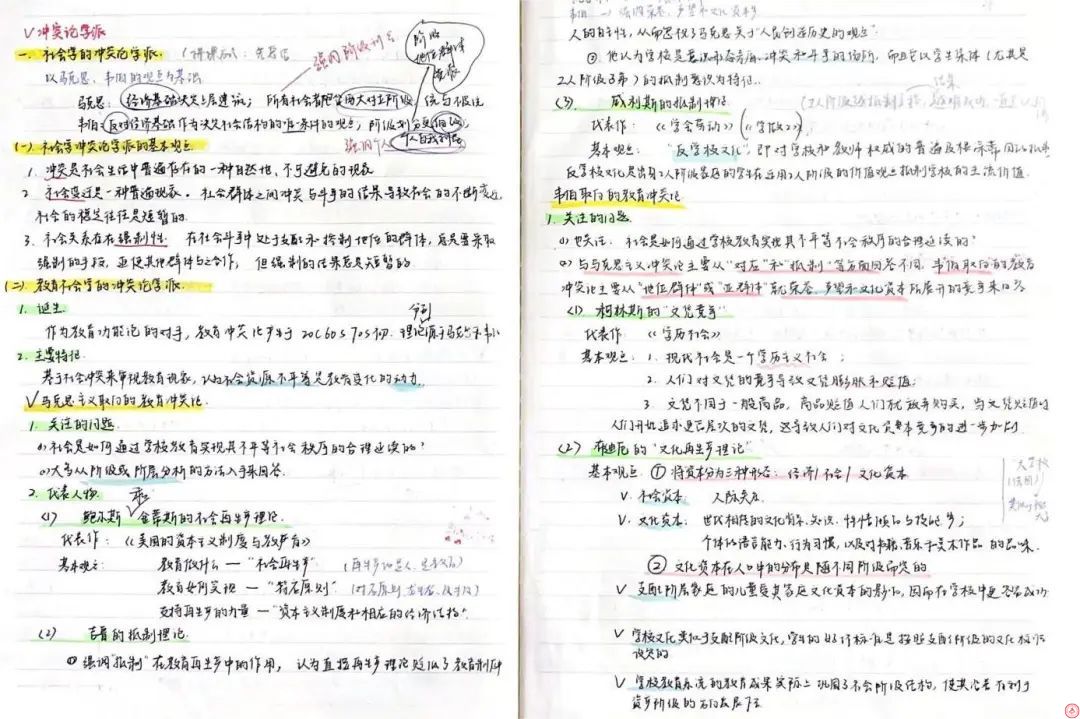 ∨冲突论学派
一. 社会学的冲突论学派.
以马克思、韦伯的观点为基调
马克思: 经济基础决定上层建筑; 所有社会都包含两大对立阶级, 统与被统
韦伯: 反对经济基础作为决定社会结构的唯一条件的观点; 阶级划分
强调阶级利益
强调个人
阶级
地位群体
(一) 社会学冲突论学派的基本观点
1. 冲突是社会生活中普遍存在的一种自然地、不可避免的现象
2. 社会变迁是一种普遍现象. 社会群体之间冲突与斗争的结果导致社会的不断变迁,
社会的稳定往往是短暂的.
3. 社会关系存在强制性. 在社会斗争中处于支配和控制地位的群体, 总是要采取
强制的手段, 迫使其他群体与之合作, 但强制的结果总是短暂的.
(二) 教育社会学的冲突论学派.
1. 诞生
作为教育功能论的对手, 教育冲突论产生于 20C60s 70s初. 理论源于马克思 韦伯
2. 主要特征.
基于社会冲突来审视教育现象, 认为社会资源不平等是教育变化的动力.
∨马克思主义取向的教育冲突论.
1. 关注的问题
(1)社会是如何通过学校教育实现其不平等社会秩序的合理延续的?
(2)大多从阶级或阶层分析的方法入手来回答.
2. 代表人物.
(1) 鲍尔斯 金蒂斯的社会再生产理论.
代表作: 《美国的资本主义制度与教育》
基本观点: 教育做什么 — "社会再生产"
教育如何实现 — "符应原则"
支持再生产的力量 — "资本主义制度和相应的经济结构"
(2) 吉鲁的抵制理论.
① 强调"抵制"在教育再生产中的作用, 认为直接再生产理论贬低了教育制度中
人的自主性, 从而忽视了马克思关于"人民创造历史的观点".
② 他认为学校是意识形态
冲突和斗争的场所, 而且它以学生集体 (尤其是
工人阶级子弟) 的抵制意识为特征.
(3) 威利斯的抵制理论.
代表作: 《学会劳动》 (《学做工》)
基本观点: "反学校文化", 即对学校和教师权威的普遍反抗
反学校文化是出身工人阶级家庭的学生在运用工人阶级的价值观点抵制学校的主流价值.
韦伯取向的教育冲突论
1. 关注的问题.
(1) 也关注: 社会是如何通过学校教育实现其不平等社会秩序的合理延续的?
(2) 与马克思主义冲突论主要从"对应"和"抵制"等方面回答不同, 韦伯取向的教育
冲突论主要从"地位群体"或"亚群体"就荣誉、声望和文化资本所展开的竞争来回答
(1) 柯林斯的"文凭竞争"
代表作: 《学历社会》
基本观点: 1. 现代社会是一个学历主义社会;
2. 人们对文凭的竞争导致文凭膨胀和贬值;
3. 文凭不同于一般商品, 商品贬值人们就放弃购买, 当文凭贬值时
人们开始追求更高层次的文凭, 这导致人们对文化资本竞争的进一步加剧.
(2) 布迪厄的"文化再生产理论"
基本观点: ① 将资本分为三种形态: 经济/社会/文化资本
∨. 社会资本 人际关系
∨. 文化资本: 世代相传的文化背景、知识、性情倾向与技能等;
个体的语言能力、行为习惯, 以及对书籍、音乐与美术作品的品味.
② 文化资本在人口中的分布是随不同阶级而变的
∨ 支配阶层家庭的儿童受其家庭文化资本的影响, 因而在学校中更容易成功
∨ 学校文化类似于支配阶级文化, 学生的好坏标准是按照支配阶级的文化标准
设定的
∨ 学校教育系统的教育成果实际上巩固了社会阶级结构, 使其沿着有利于
资产阶级的方向发展下去